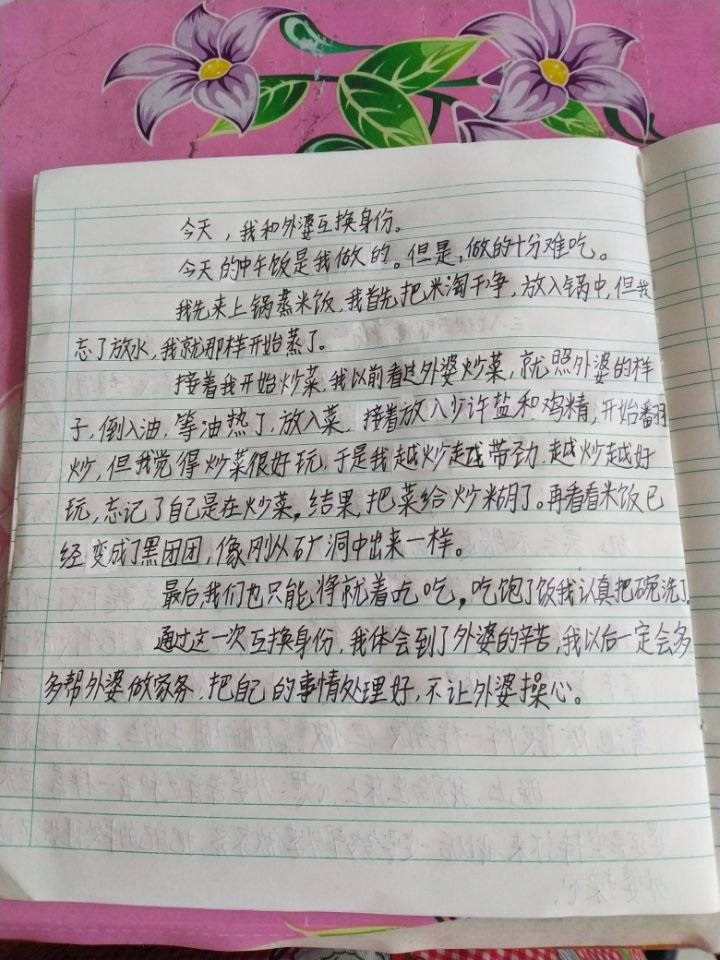 今天，我和外婆互换身份。
今天的中午饭是我做的。但是，做的十分难吃。
我先来上锅蒸米饭，我首先把米淘干净，放入锅中，但我
忘了放水，我就那样开始蒸了。
接着我开始炒菜，我以前看过外婆炒菜，就照外婆的样
子，倒入油，等油热了，放入菜，接着放入少许盐和鸡精，开始翻
炒，但我觉得炒菜很好玩，于是我越炒越带劲，越炒越好
玩，忘记了自己是在炒菜。结果，把菜给炒糊了。再看看米饭已
经变成了黑团团，像刚从矿洞中出来一样。
最后，我们也只能将就着吃吃，吃饱了饭我认真把碗洗了。
通过这一次互换身份，我体会到了外婆的辛苦，我以后一定会多
多帮外婆做家务，把自己的事情处理好，不让外婆操心。